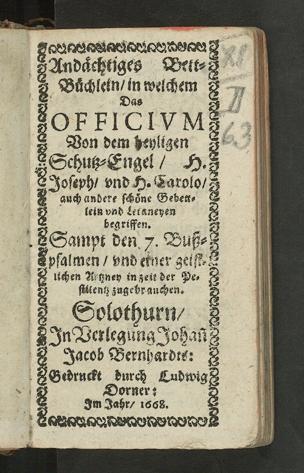 Andächtiges Bett-
Büchlein/ in welchem
Das
OFFICIVM
Von dem heyligen
Schutz-Engel/ H.
Joseph/ vnd H. Carolo/
auch andere schöne Gebett-
lein vnd Letaneyen
begriffen.
Sampt den 7. Buß-
psalmen/ vnd einer geist-
lichen Artzney in zeit der Pe-
stilentz zugebrauchen.
Solothurn/
In Verlegung Johañ
Jacob Bernhardts:
Gedruckt durch Ludwig
Dorner:
Im Jahr/ 1668.
XI
II
63